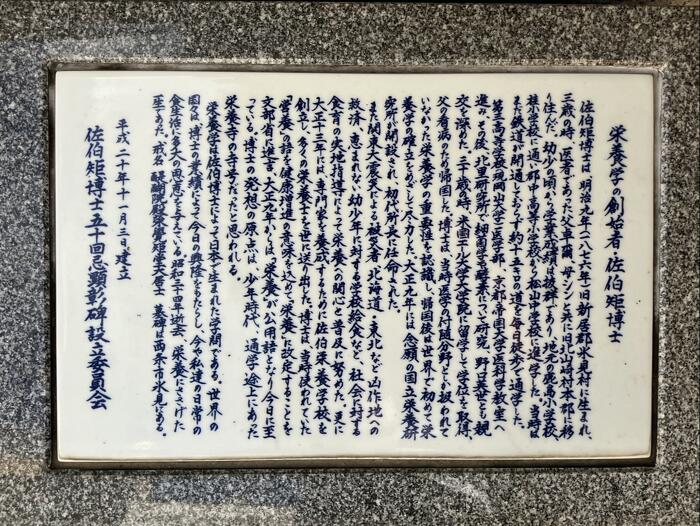 栄養学の創始者・佐伯矩博士
佐伯矩博士は、明治九年(一八七六年)旧新居郡氷見村に生まれ、
三歳の時、医者であった父卓爾、母シンと共に旧北山崎村本郡に移
り住んだ。幼少の頃から学業成績は抜群であり、地元の鹿島小学校、
桂小学校に通い、郡中高等小学校から松山中学校に進学した。当時は
まだ鉄道が開通しておらず約十二キロの道を毎日徒歩で通学した。
第三高等学校(現岡山大学)医学部、京都帝国大学医科学教室へ
進み、その後、北里研究所で細菌学、酵素について研究。野口英世とも親
交を深めた。三十歳の時、米国エール大学大学院に留学し学位を取得、
父の看病のため帰国した。博士は、当時、医学の付随分野としか扱われて
いなかった栄養学の重要造を認識し、帰国後は世界で初めて栄
養学の確立をめざして尽力した。大正九年には念願の国立栄養研
究所が開設され、初代所長に任命された。
また関東大震災による被災者、北海道・東北など凶作地への
救済、恵まれない幼少年に対する学校給食など、社会に対する
食育の実地指導によって栄養への関心と普及に努めた。更に
大正十三年には、専門家を養成するために佐伯栄養学校を
創立し、多くの栄養士を世に送り出した。博士は、当時使われていた
「営養」の語を健康増進の意味をこめて「栄養」に改定することを
文部省に進言、大正九年からは、「栄養」が公用語となり今日に至
っている。博士の発想の原点は、少年時代、通学途上にあった
栄養寺の寺号だったと思われる。
栄養学は佐伯博士によって日本で生まれた学問である。世界の
国々は、博士の業績によって今日の興隆をもたらし、今や私達の日常の
食生活に多大の恩恵を与えている。昭和三四年逝去、栄養にささげた
一生であった。戒名 醍醐院殿栄養学矩学大居士 墓碑は西条市氷見にある。
平成二十年十一月三日建立
佐伯矩博士五十回忌顕彰碑設立委員会